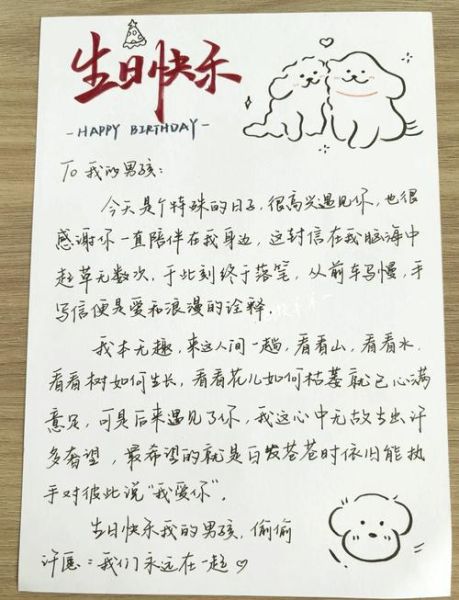 生日快乐
- HAPPY BIRTHDAY -
To 我的男孩：
今天是个特殊的日子，很高兴遇见你，也很
感谢你一直陪伴在我身边，这封信在我脑海中
起草无数次，于此刻终于落笔，从前车马慢，手
写信便是爱和浪漫的诠释，
我本无趣，来这人间一趟，看看山，看看水，
看看树如何生长，看看花儿如何枯萎就已心满
意足，可是后来遇见了你，我这心中无故生出许
多奢望，最希望的就是白发苍苍时依旧能执
手对彼此说“我爱你”。
生日快乐我的男孩，偷偷
许愿：我们永远在一起♡